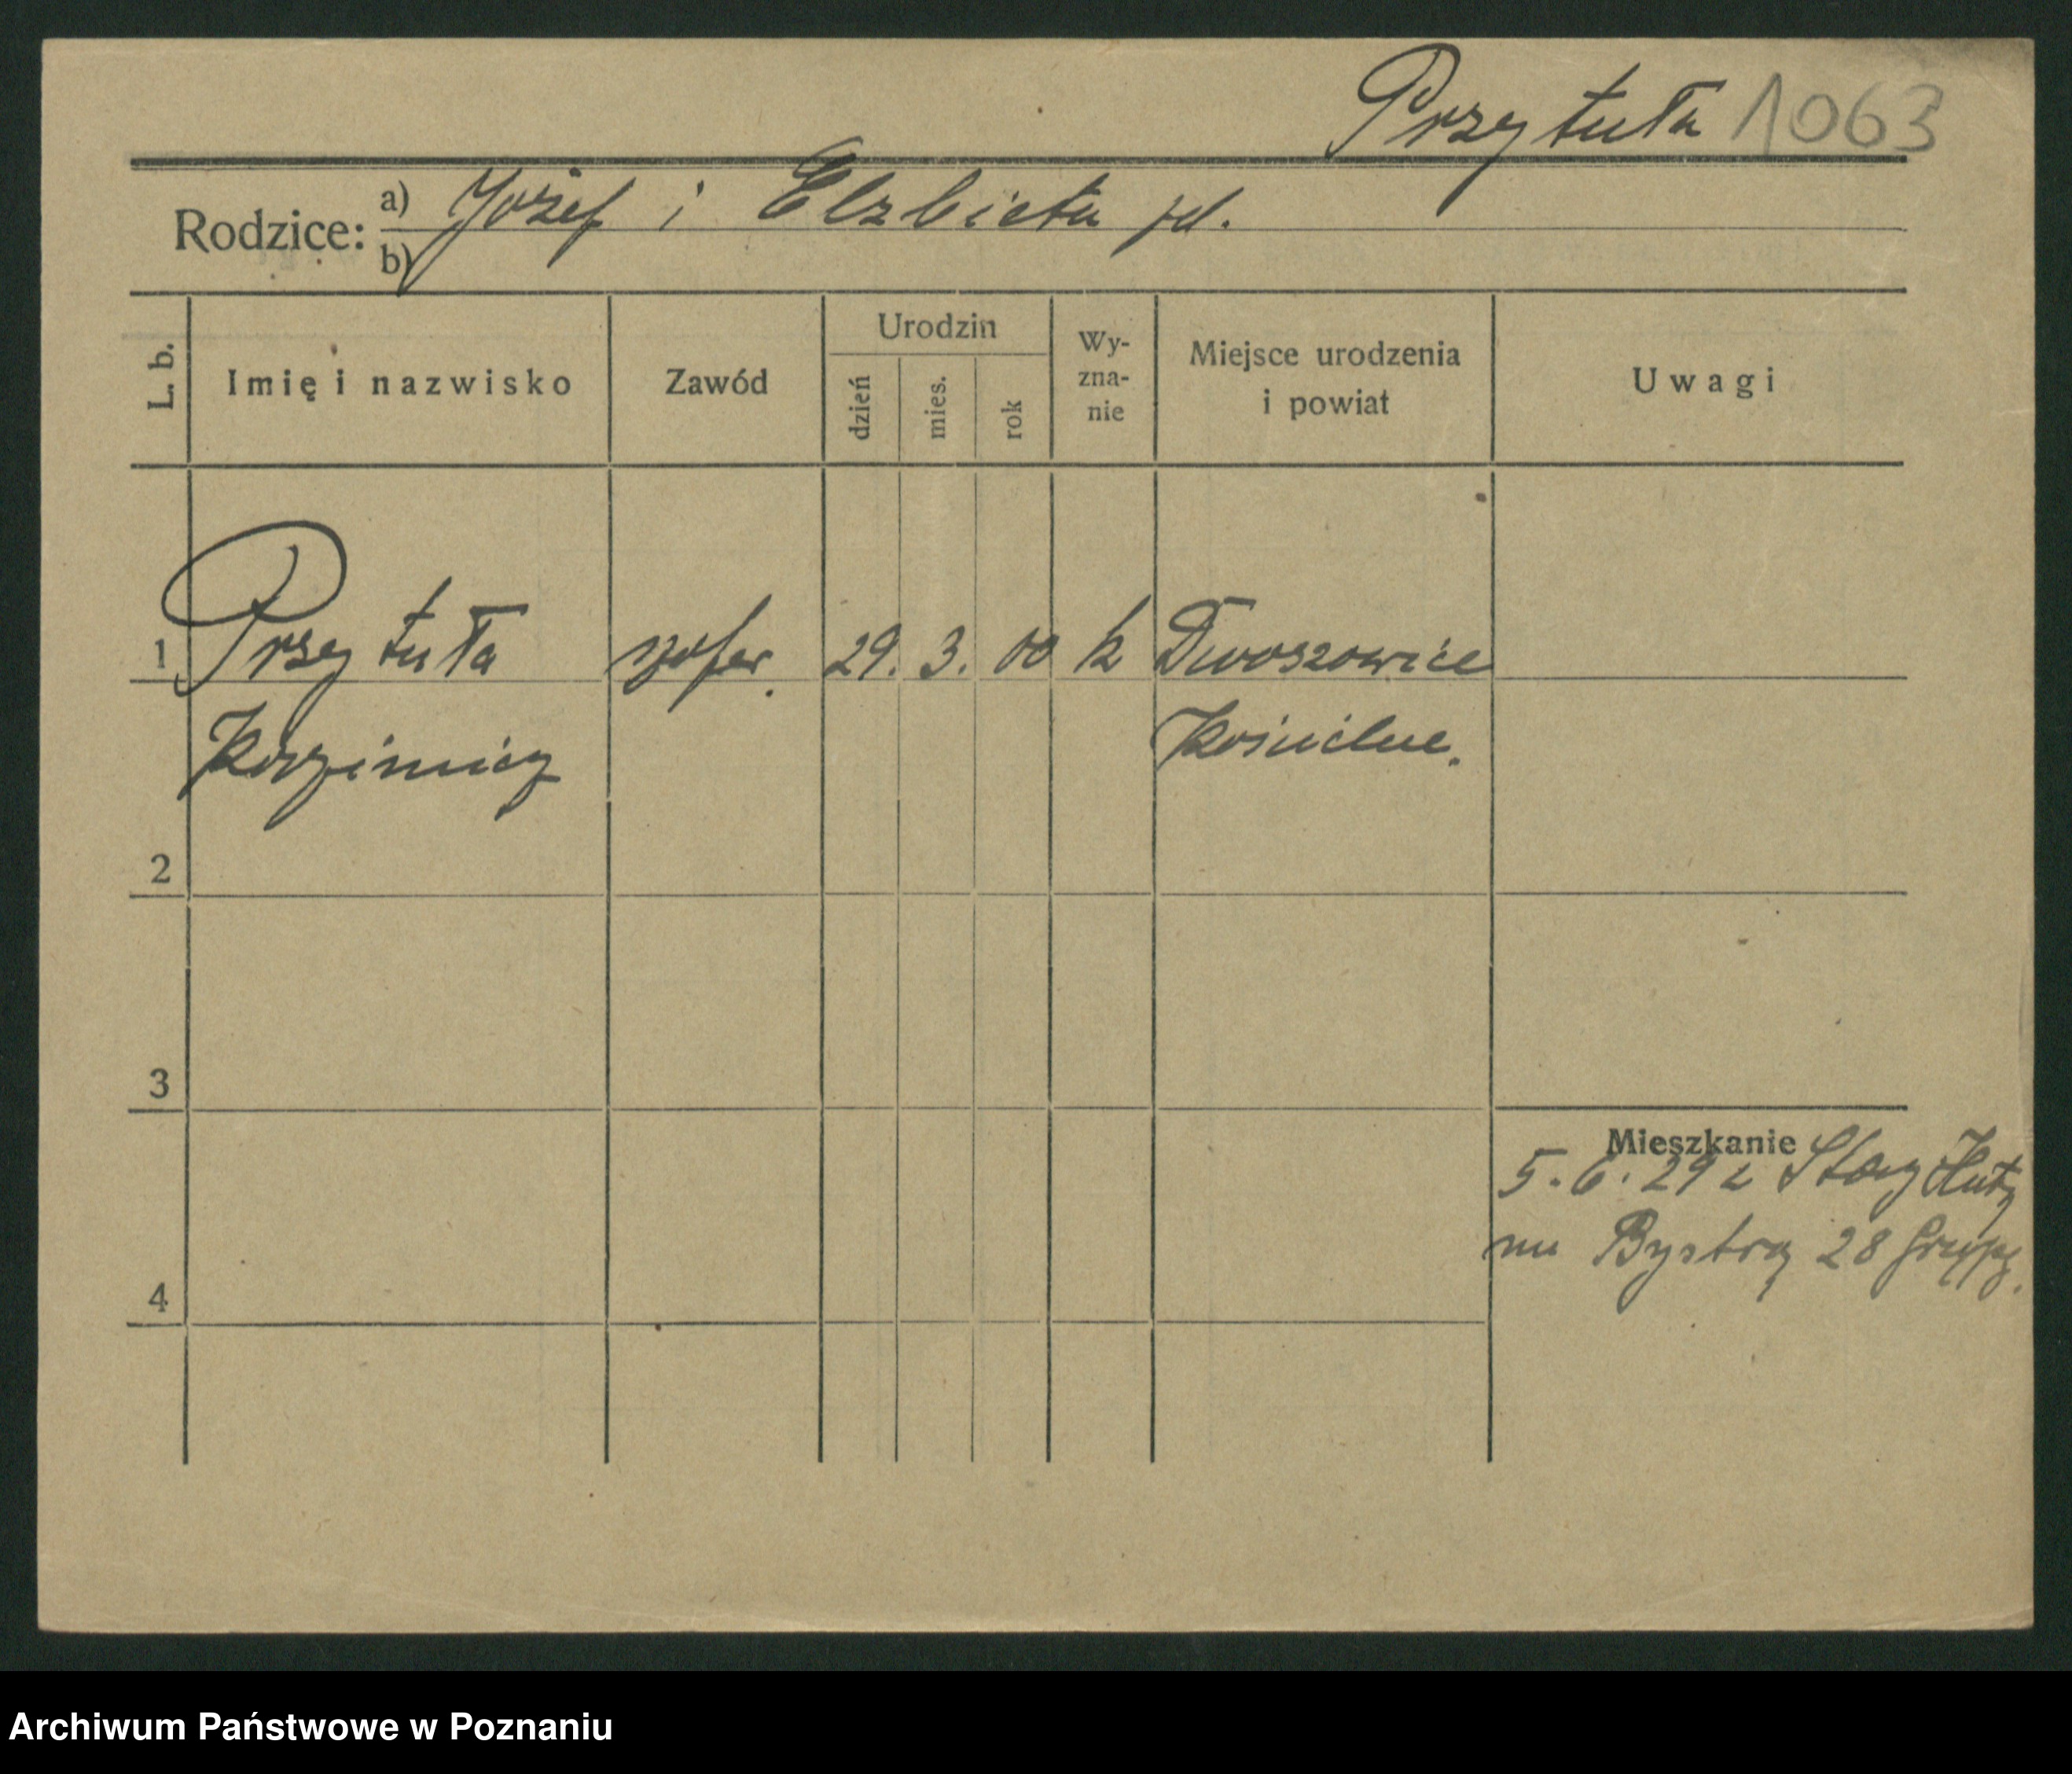 Przytuła 1063
Rodzice: a) Józef i Elzbieta jd.
b)
L. b.
Imię i nazwisko
Zawód
Urodzin
dzień
mies.
rok
Wy-
zna-
nie
Miejsce urodzenia
i powiat
Uwagi
1 Przytuła szofer. 29. 3. 00 k Dwoszowice
Kazimierz Kościelne.
2
3
Mieszkanie
5. 6. 29 z Starej
na Bystrą 28
4
Archiwum Państwowe w Poznaniu